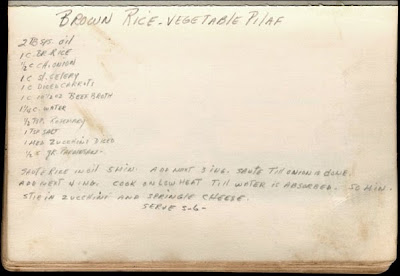 BROWN RICE - VEGETABLE PILAF
2 TBSPS. OIL
1 C. BR. RICE
½ C CH. ONION
1 C SL. CELERY
1 C DICED CARROTS
1 C 10½ OZ BEEF BROTH
1¼ C. WATER
½ TSP. ROSEMARY
1 TSP SALT
1 MED ZUCCHINI DICED
½ C GR. PARMESAN
SAUTE RICE IN OIL 5 MIN. ADD NEXT 3 ING. SAUTE TIL ONION IS DONE.
ADD NEXT 4 ING. COOK ON LOW HEAT TILL WATER IS ABSORBED. 50 MIN.
STIR IN ZUCCHINI AND SPRINGLE CHEESE.
SERVE 5-6-